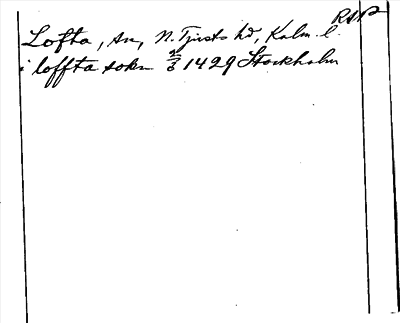 RAP
Lofta, sn, N. Tjusts hd, Kalm. l.
i loffta sokn 2/6 1429 Stockholm